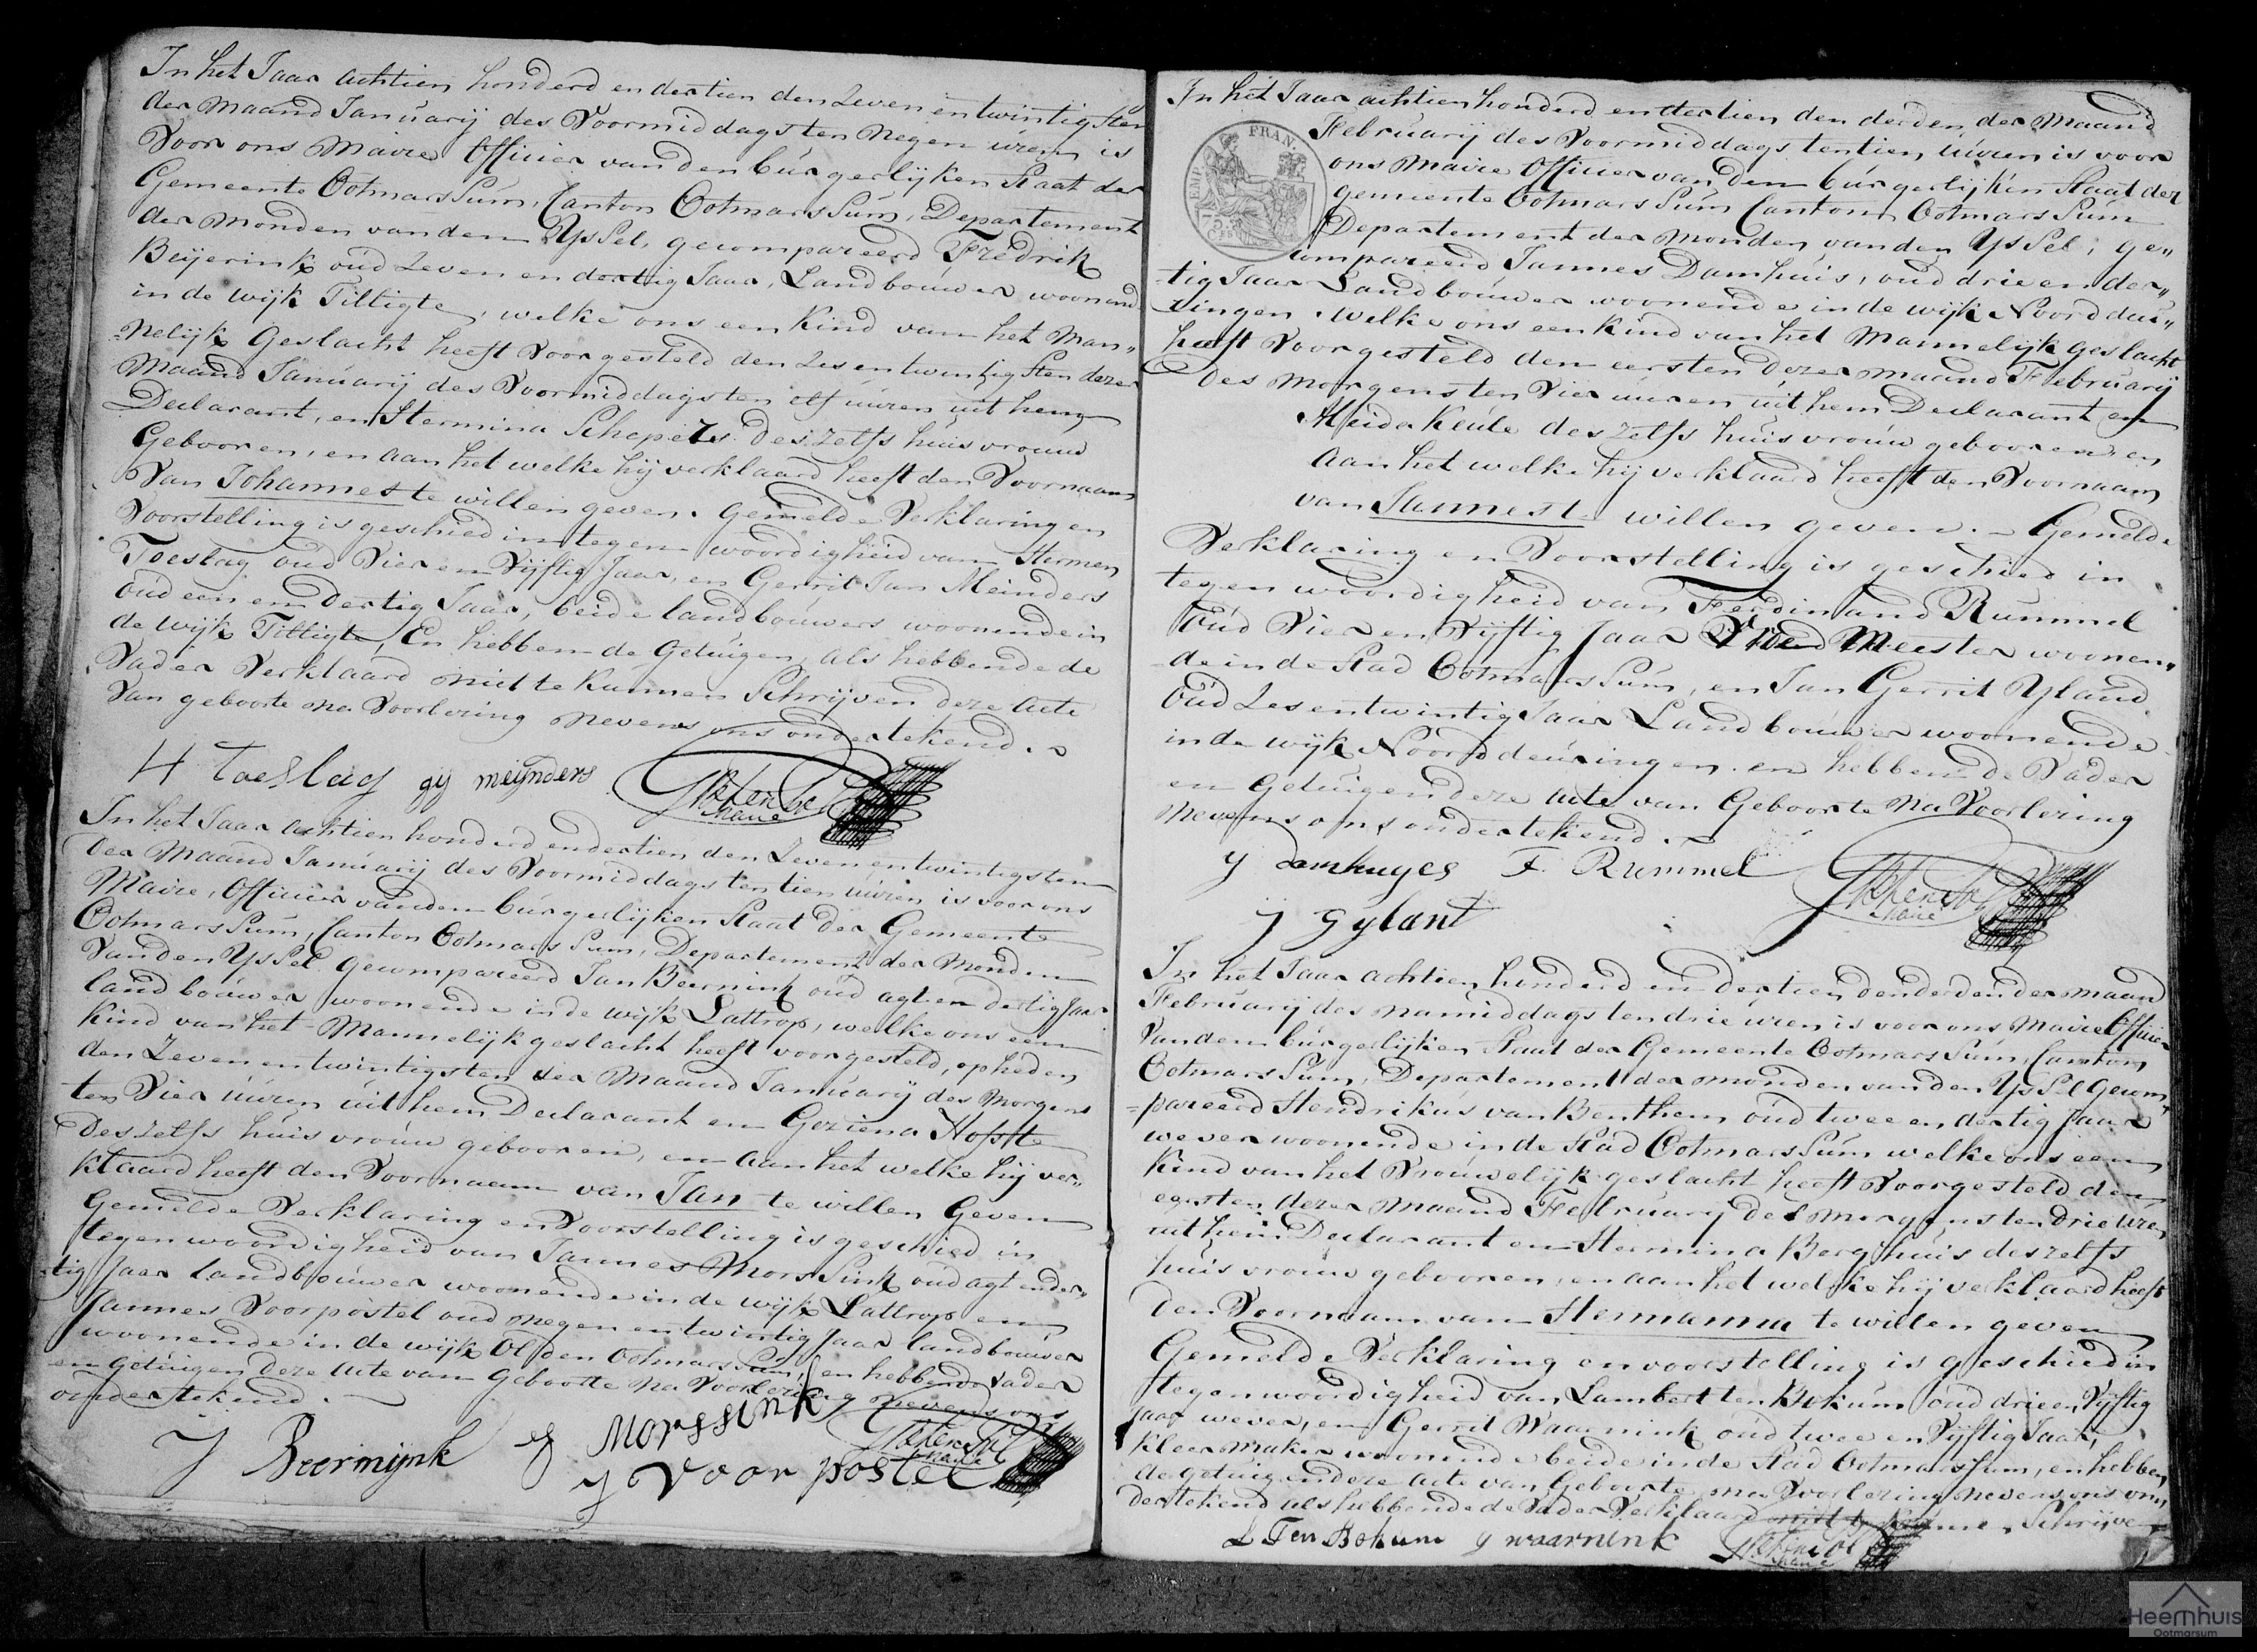 In het Jaar achtien honderd en dertien den Zeven en twintigsten
der Maand Januarij des Voormiddags ten Negen uren is
Voor ons Maire Officier van den burgerlijken Staat der
Gemeente Ootmarssum, Canton Ootmarssum, Departement
der Monden van den Yssel, gecompareerd Fredrik
Beijerink oud Zeven en dertig Jaar, Landbouwer woonend
in de wijk Tiltigte, welke ons een Kind van het Man„
„nelijk Geslacht heeft Voorgesteld den Zes en twintigsten dezer
Maand Januarij des Voormiddags ten olf uuren uit hem
Declarant, en Hermina Schepers deszelfs huisvrouw
Gebooren, en aan het welke hij verklaard heeft den Voornaam
Van Johannes te willen geven. Gemelde Verklaring en
Voorstelling is geschied in tegenwoordigheid van Hermen
Toeslag oud Vier en Vijftig Jaar, en Gerrit Jan Meinders
oud een en dertig Jaar, beide landbouwers woonende in
de wijk Tiltigte, En hebben de Getuigen, als hebbende de
Vader Verklaard niet te Kunnen Schrijven deze Acte
Van geboorte na Voorlezing nevens ons ondertekend.
H toeslag gj meijnders
Maire
In het Jaar achtien honderd en dertien den Zeven en twintigsten
der Maand Januarij des Voormiddags ten tien uuren is voor ons
Maire, Officier van den burgerlijken Staat der Gemeente
Ootmarssum, Canton Ootmarssum, Departement der Monden
Van den Yssel gecompareerd Jan Beernink oud agt en dertig Jaar
landbouwer woonende in de wijk Lattrop, welke ons een
Kind van het Mannelijk geslacht heeft voorgesteld, op heden
den Zeven en twintigsten der Maand Januarij des Morgens
ten Vier uuren uit hem Declarant en Geziena Hofste
deszelfs huisvrouw gebooren, en aan het welke hij ver„
klaard heeft den Voornaam van Jan te willen Geven
Gemelde Verklaring en Voorstelling is geschied in
tegenwoordigheid van Jannes Morssink oud agt en der„
„tig Jaar landbouwer woonende in de wijk Lattrop en
Jannes Voorpostel oud negen en twintig Jaar landbouwer
woonende in de wijk Olden Ootmarssum, en hebben de Vader
en Getuigen deze Acte van Geboorte na Voorlezing nevens ons
ondertekend.
J Beernijnk J Morssink
Maire
J Voorpostel
In het Jaar achtien honderd en dertien den derden der Maand
Februarij des Voormiddags ten tien uuren is voor
ons Maire Officier van den burgerlijken Staat der
gemeente Ootmarssum Canton Ootmarssum
Departement der Monden van den Yssel, ge„
compareerd Jannes Damhuis, oud drie en der„
„tig Jaar Landbouwer woonende in de wijk Noorddeu„
ringen, welke ons een Kind van het Mannelijk geslacht
heeft Voorgesteld den eersten dezer maand Februarij
des morgens ten Vier uuren uit hem Declarant en
Aleida Keule deszelfs huisvrouw gebooren en
aan het welke hij verklaard heeft den Voornaam
van Jannes te willen geven. Gemelde
Verklaring en Voorstelling is geschied in
tegenwoordigheid van Ferdinand Rummel
Oud Vier en Vijftig Jaar Vroed Meester woonen„
de in de Stad Ootmarssum, en Jan Gerrit Yland
Oud Zes en twintig Jaar Landbouwer woonende
in de wijk Noorddeuringen en hebben de Vader
en Getuigen deze acte van Geboorte na Voorlezing
Nevens ons ondertekend.
EMP. FRAN.
75
J Damhuyes F. Rummel
Maire
J Gylant
In het Jaar achtien honderd en dertien den derden der maand
Februarij des namiddags ten drie uren is voor ons Maire Officier
Van den burgerlijken Staat der Gemeente Ootmarssum, Canton
Ootmarssum, Departement der monden van den Yssel Gecom
=pareerd Hendrikus van Benthem oud twee en dertig Jaar
wever woonende in de Stad Ootmarssum welke ons een
Kind van het Vrouwelijk geslacht heeft Voorgesteld den
eersten dezer maand Februarij des morgens ten drie uren
uit hem Declarant en Hermina Berghuis deszelfs
huisvrouw gebooren, en aan het welke hij verklaard heeft
den Voornaam van Hermanna te willen geven
Gemelde Verklaring en voorstelling is geschied in
tegenwoordigheid van Lambert ten Bokum oud drie en Vijftig
Jaar wever, en Gerrit Waarnink oud twee en Vijftig Jaar,
Kleermaker woonende beide in de Stad Ootmarssum, en hebben
de Getuigen deze acte van Geboorte na Voorlezing nevens ons on„
dertekend als hebbende de Vader Verklaard niet te kunnen Schrijven
L Ten Bokum g waarnink
Maire
Heemhuis
Ootmarsum